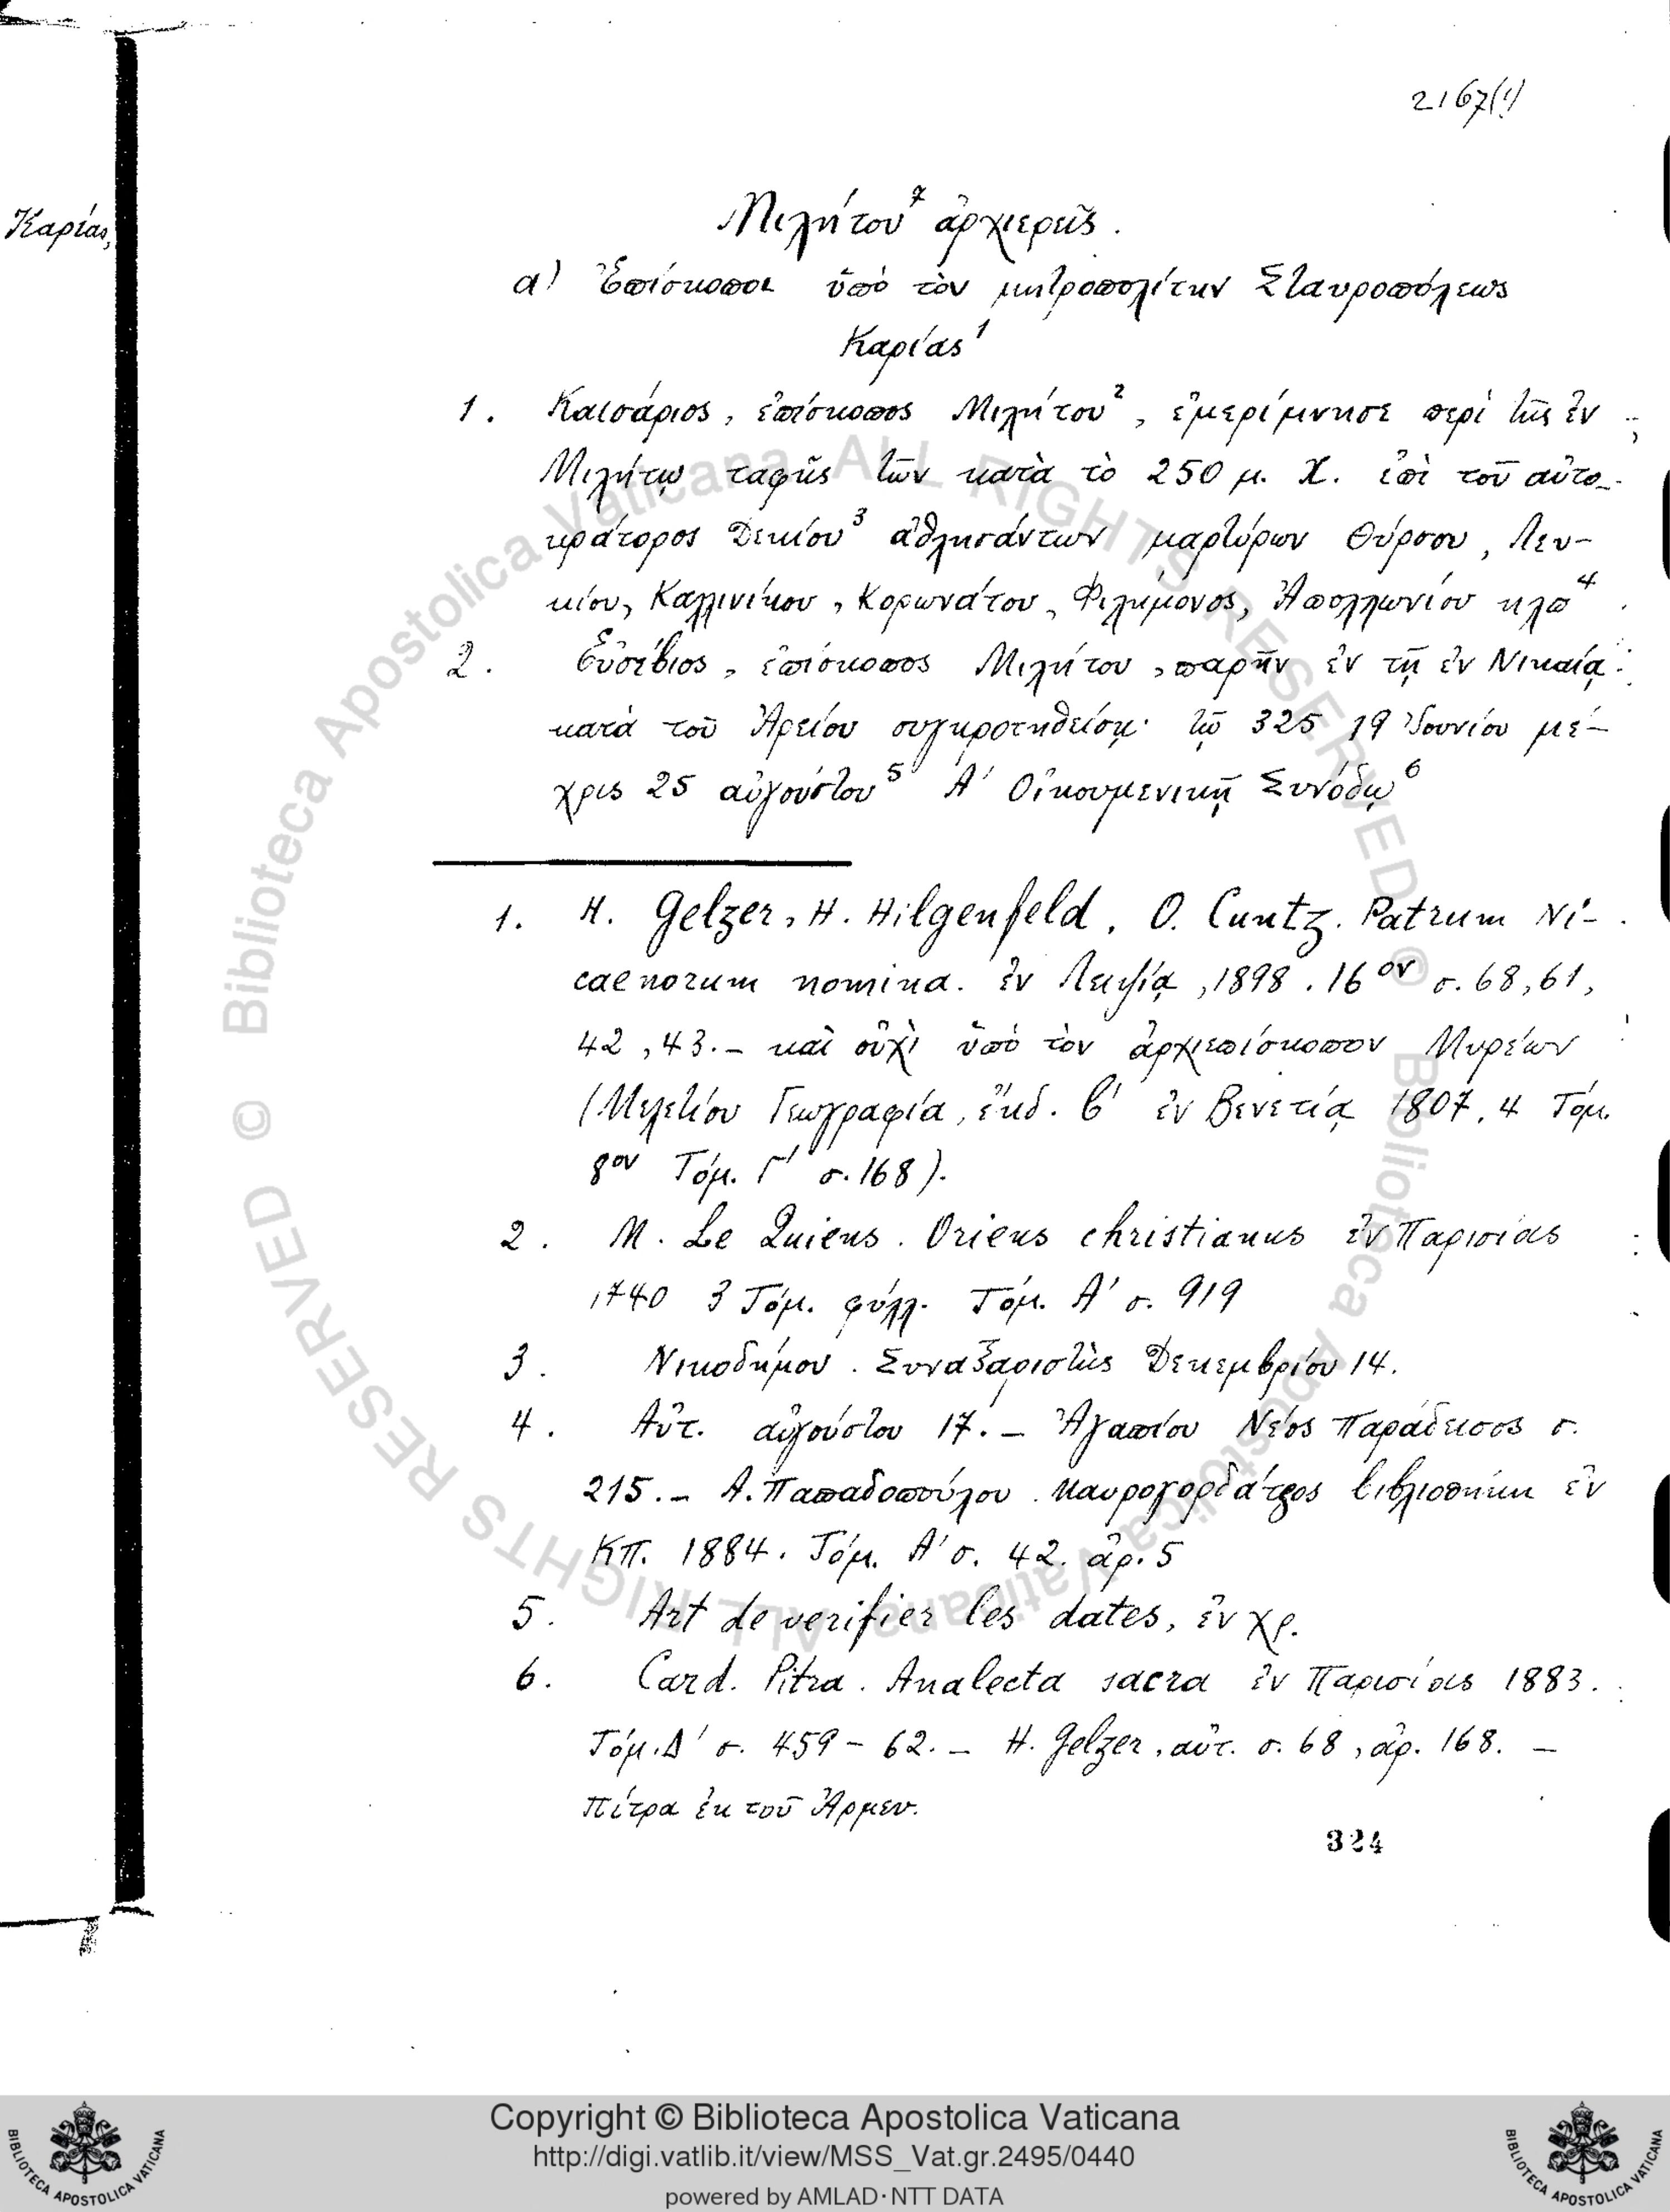 2167(1)
Καρίας,
Μιλήτου⁷ ἀρχιερεῖς.
α) Ἐπίσκοποι ὑπὸ τὸν μητροπολίτην Σταυροπόλεως
Καρίας¹
1. Καισάριος, ἐπίσκοπος Μιλήτου², ἐμερίμνησε περὶ τῆς ἐν
Μιλήτῳ ταφῆς τῶν κατὰ τὸ 250 μ. Χ. ἐπὶ τοῦ αὐτο-
κράτορος Δεκίου³ ἀθλησάντων μαρτύρων Θύρσου, Λευ-
κίου, Καλλινίκου, Κορωνάτου, Φιλήμονος, Ἀπολλωνίου κλπ⁴.
2. Εὐσέβιος, ἐπίσκοπος Μιλήτου, παρῆν ἐν τῇ ἐν Νικαίᾳ
κατὰ τοῦ Ἀρείου συγκροτηθείσῃ τῷ 325 19 Ἰουνίου μέ-
χρις 25 αὐγούστου⁵ Α' Οἰκουμενικῇ Συνόδῳ⁶
1. H. Gelzer, H. Hilgenfeld, O. Cuntz. Patrum Ni-
caenorum nomina. ἐν Λειψίᾳ, 1898. 16ον σ. 68, 61,
42, 43. – καὶ οὐχὶ ὑπὸ τὸν ἀρχιεπίσκοπον Μυρέων
(Μελετίου Γεωγραφία, ἔκδ. β' ἐν Βενετίᾳ 1807, 4 Τόμ.
8ον Τόμ. Γ' σ. 168).
2. M. Le Quiens. Oriens christianus ἐν Παρισίοις
1740 3 Τόμ. φύλλ. Τόμ. Α' σ. 919
3. Νικοδήμου. Συναξαριστὴς Δεκεμβρίου 14.
4. Αὐτ. αὐγούστου 17. – Ἀγαπίου Νέος Παράδεισος σ.
215. – Α. Παπαδοπούλου. Μαυρογορδάτειος βιβλιοθήκη ἐν
ΚΠ. 1884. Τόμ. Α' σ. 42. ἀρ. 5
5. Art de verifier les dates, ἐν χρ.
6. Card. Pitra. Analecta sacra ἐν Παρισίοις 1883.
Τόμ. Δ' σ. 459 – 62. – H. Gelzer, αὐτ. σ. 68, ἀρ. 168. –
Πίτρα ἐκ τοῦ Ἀρμεν.
324
© Biblioteca Apostolica Vaticana ALL RIGHTS RESERVED
© Biblioteca Apostolica Vaticana ALL RIGHTS RESERVED
Copyright © Biblioteca Apostolica Vaticana
http://digi.vatlib.it/view/MSS_Vat.gr.2495/0440
powered by AMLAD·NTT DATA
BIBLIOTECA APOSTOLICA VATICANA
BIBLIOTECA APOSTOLICA VATICANA